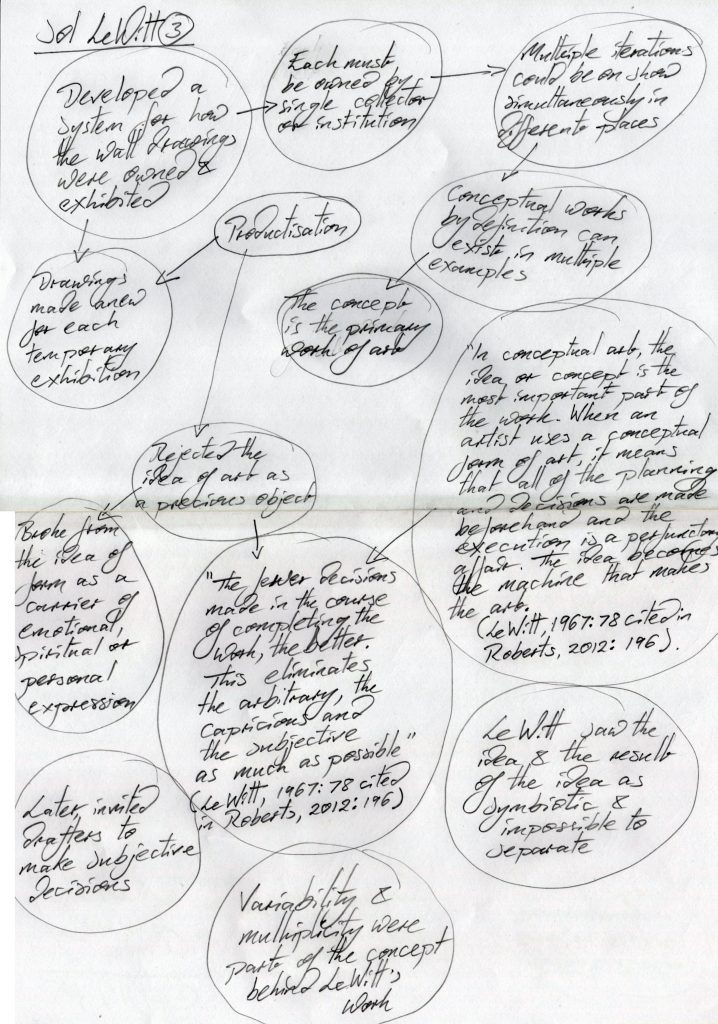 Sol LeWitt 3
Developed a
system for how
the wall drawings
were owned &
exhibited
Each must
be owned by
single collector
or institution
Multiple iterations
could be on show
simultaneously in
different places
Productisation
Conceptual works
by definition can
exist in multiple
examples
Drawings
made anew
for each
temporary
exhibition
The concept
is the primary
work of art
"In conceptual art, the
idea or concept is the
most important part of
the work. When an
artist uses a conceptual
form of art, it means
that all of the planning
and decisions are made
beforehand and the
execution is a perfunctory
affair. The idea becomes
the machine that makes
the art.
(LeWitt, 1967: 78 cited in
Roberts, 2012: 196).
Rejected the
idea of art as
a precious object
Broke from
the idea of
form as a
carrier of
emotional,
spiritual or
personal
expression
"The fewer decisions
made in the course
of completing the
work, the better.
This eliminates
the arbitrary, the
capricious and
the subjective
as much as possible"
(LeWitt, 1967: 78 cited
in Roberts, 2012: 196)
LeWitt saw the
idea & the result
of the idea as
symbiotic &
impossible to
separate
Later, invited
drafters to
make subjective
decisions
Variability &
multiplicity were
part of the concept
behind LeWitt's
work